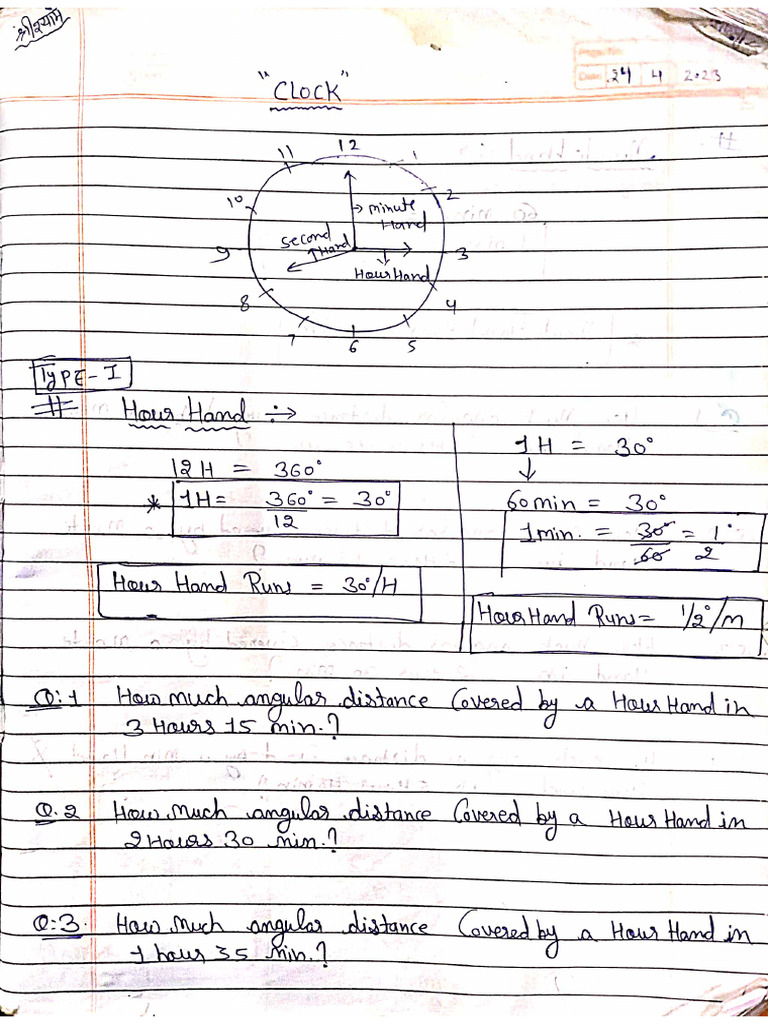 श्री श्याम
Page No.
Date 24 4 2023
"CLOCK"
12
11 1
10 2
minute
Hand
second
Hand
9 3
Hour Hand
8 4
7 5
6
Type-I
# Hour Hand ÷→
12H = 360°
* 1H = 360°/12 = 30°
Hour Hand Runs = 30°/H
1H = 30°
↓
60 min = 30°
1 min. = 30°/60 = 1°/2
Hour Hand Runs = 1/2°/M
Q:1 How much angular distance Covered by a Hour Hand in
3 Hours 15 min.?
Q.2 How much angular distance Covered by a Hour Hand in
2 Hours 30 min.?
Q:3. How much angular distance Covered by a Hour Hand in
1 hour 35 min.?